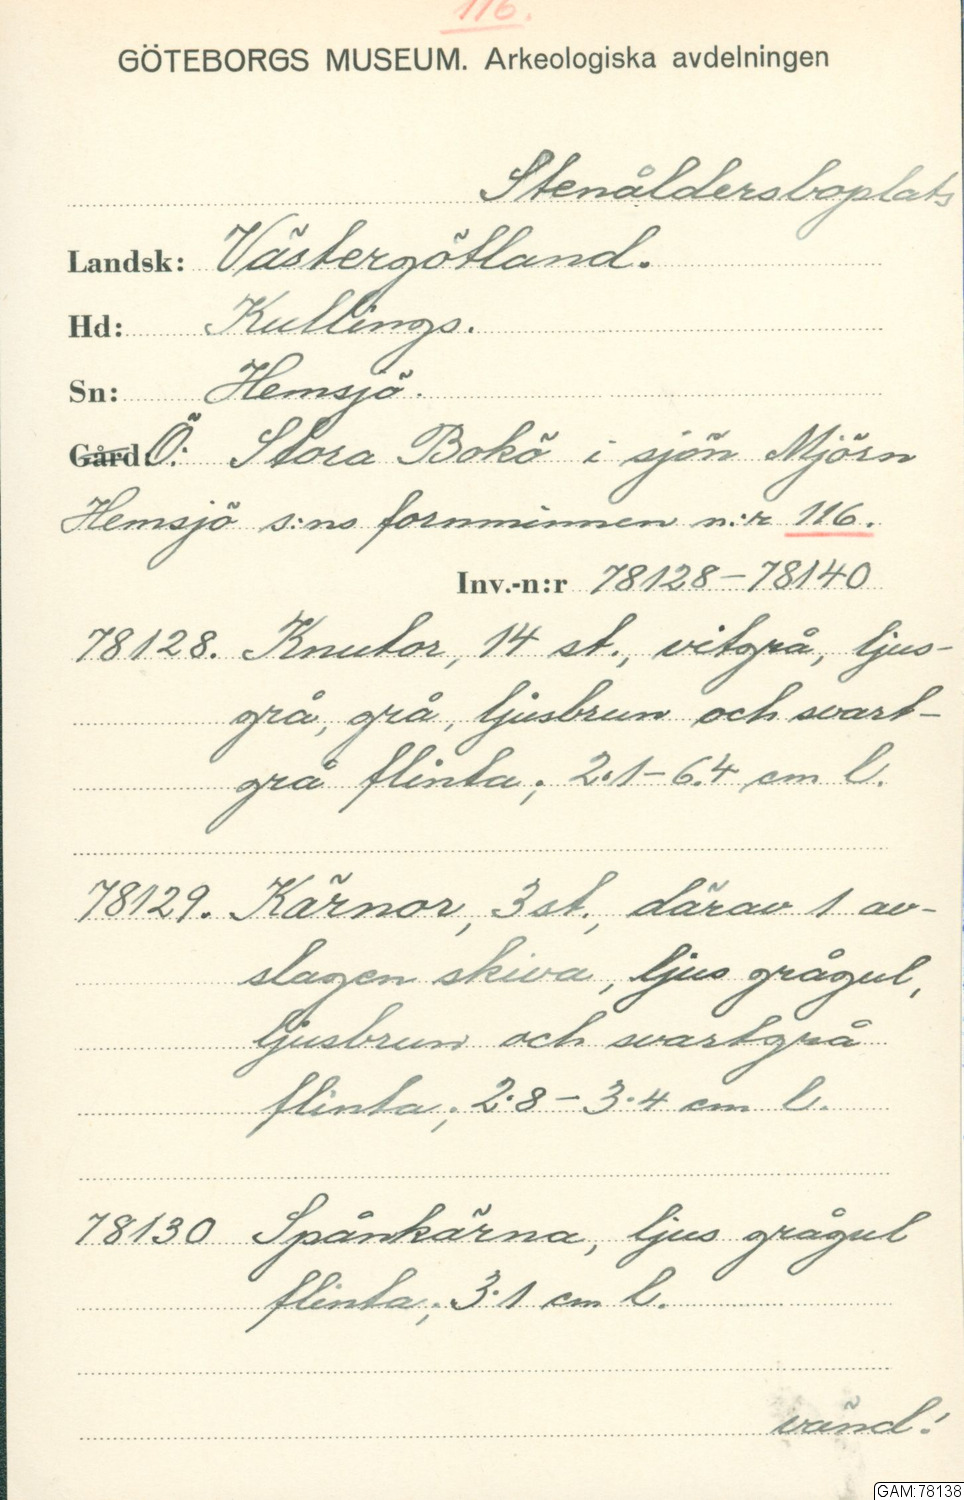 116.
GÖTEBORGS MUSEUM. Arkeologiska avdelningen
Stenåldersboplats
Landsk: Västergötland.
Hd: Kullings.
Sn: Hemsjö.
Gård: Ö: Stora Bokö i sjön Mjörn
Hemsjö s:ns fornminnen n:r 116.
Inv.-n:r 78128-78140
78128. Knutor, 14 st., vitgrå, ljus-
grå, grå, ljusbrun och svart-
grå flinta; 2.1-6.4 cm l.
78129. Kärnor, 3 st., därav 1 av-
slagen skiva, ljus grågul,
ljusbrun och svartgrå
flinta; 2.8-3.4 cm l.
78130 Spånkärna, ljus grågul
flinta; 3.1 cm l.
vänd!
GAM:78138